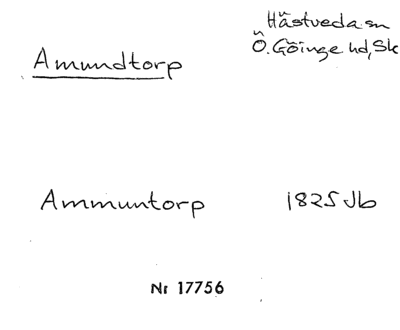 Hästveda sn
Ö. Göinge hd, Sk
Amundtorp
Ammuntorp 1825 Jb
Nr 17756